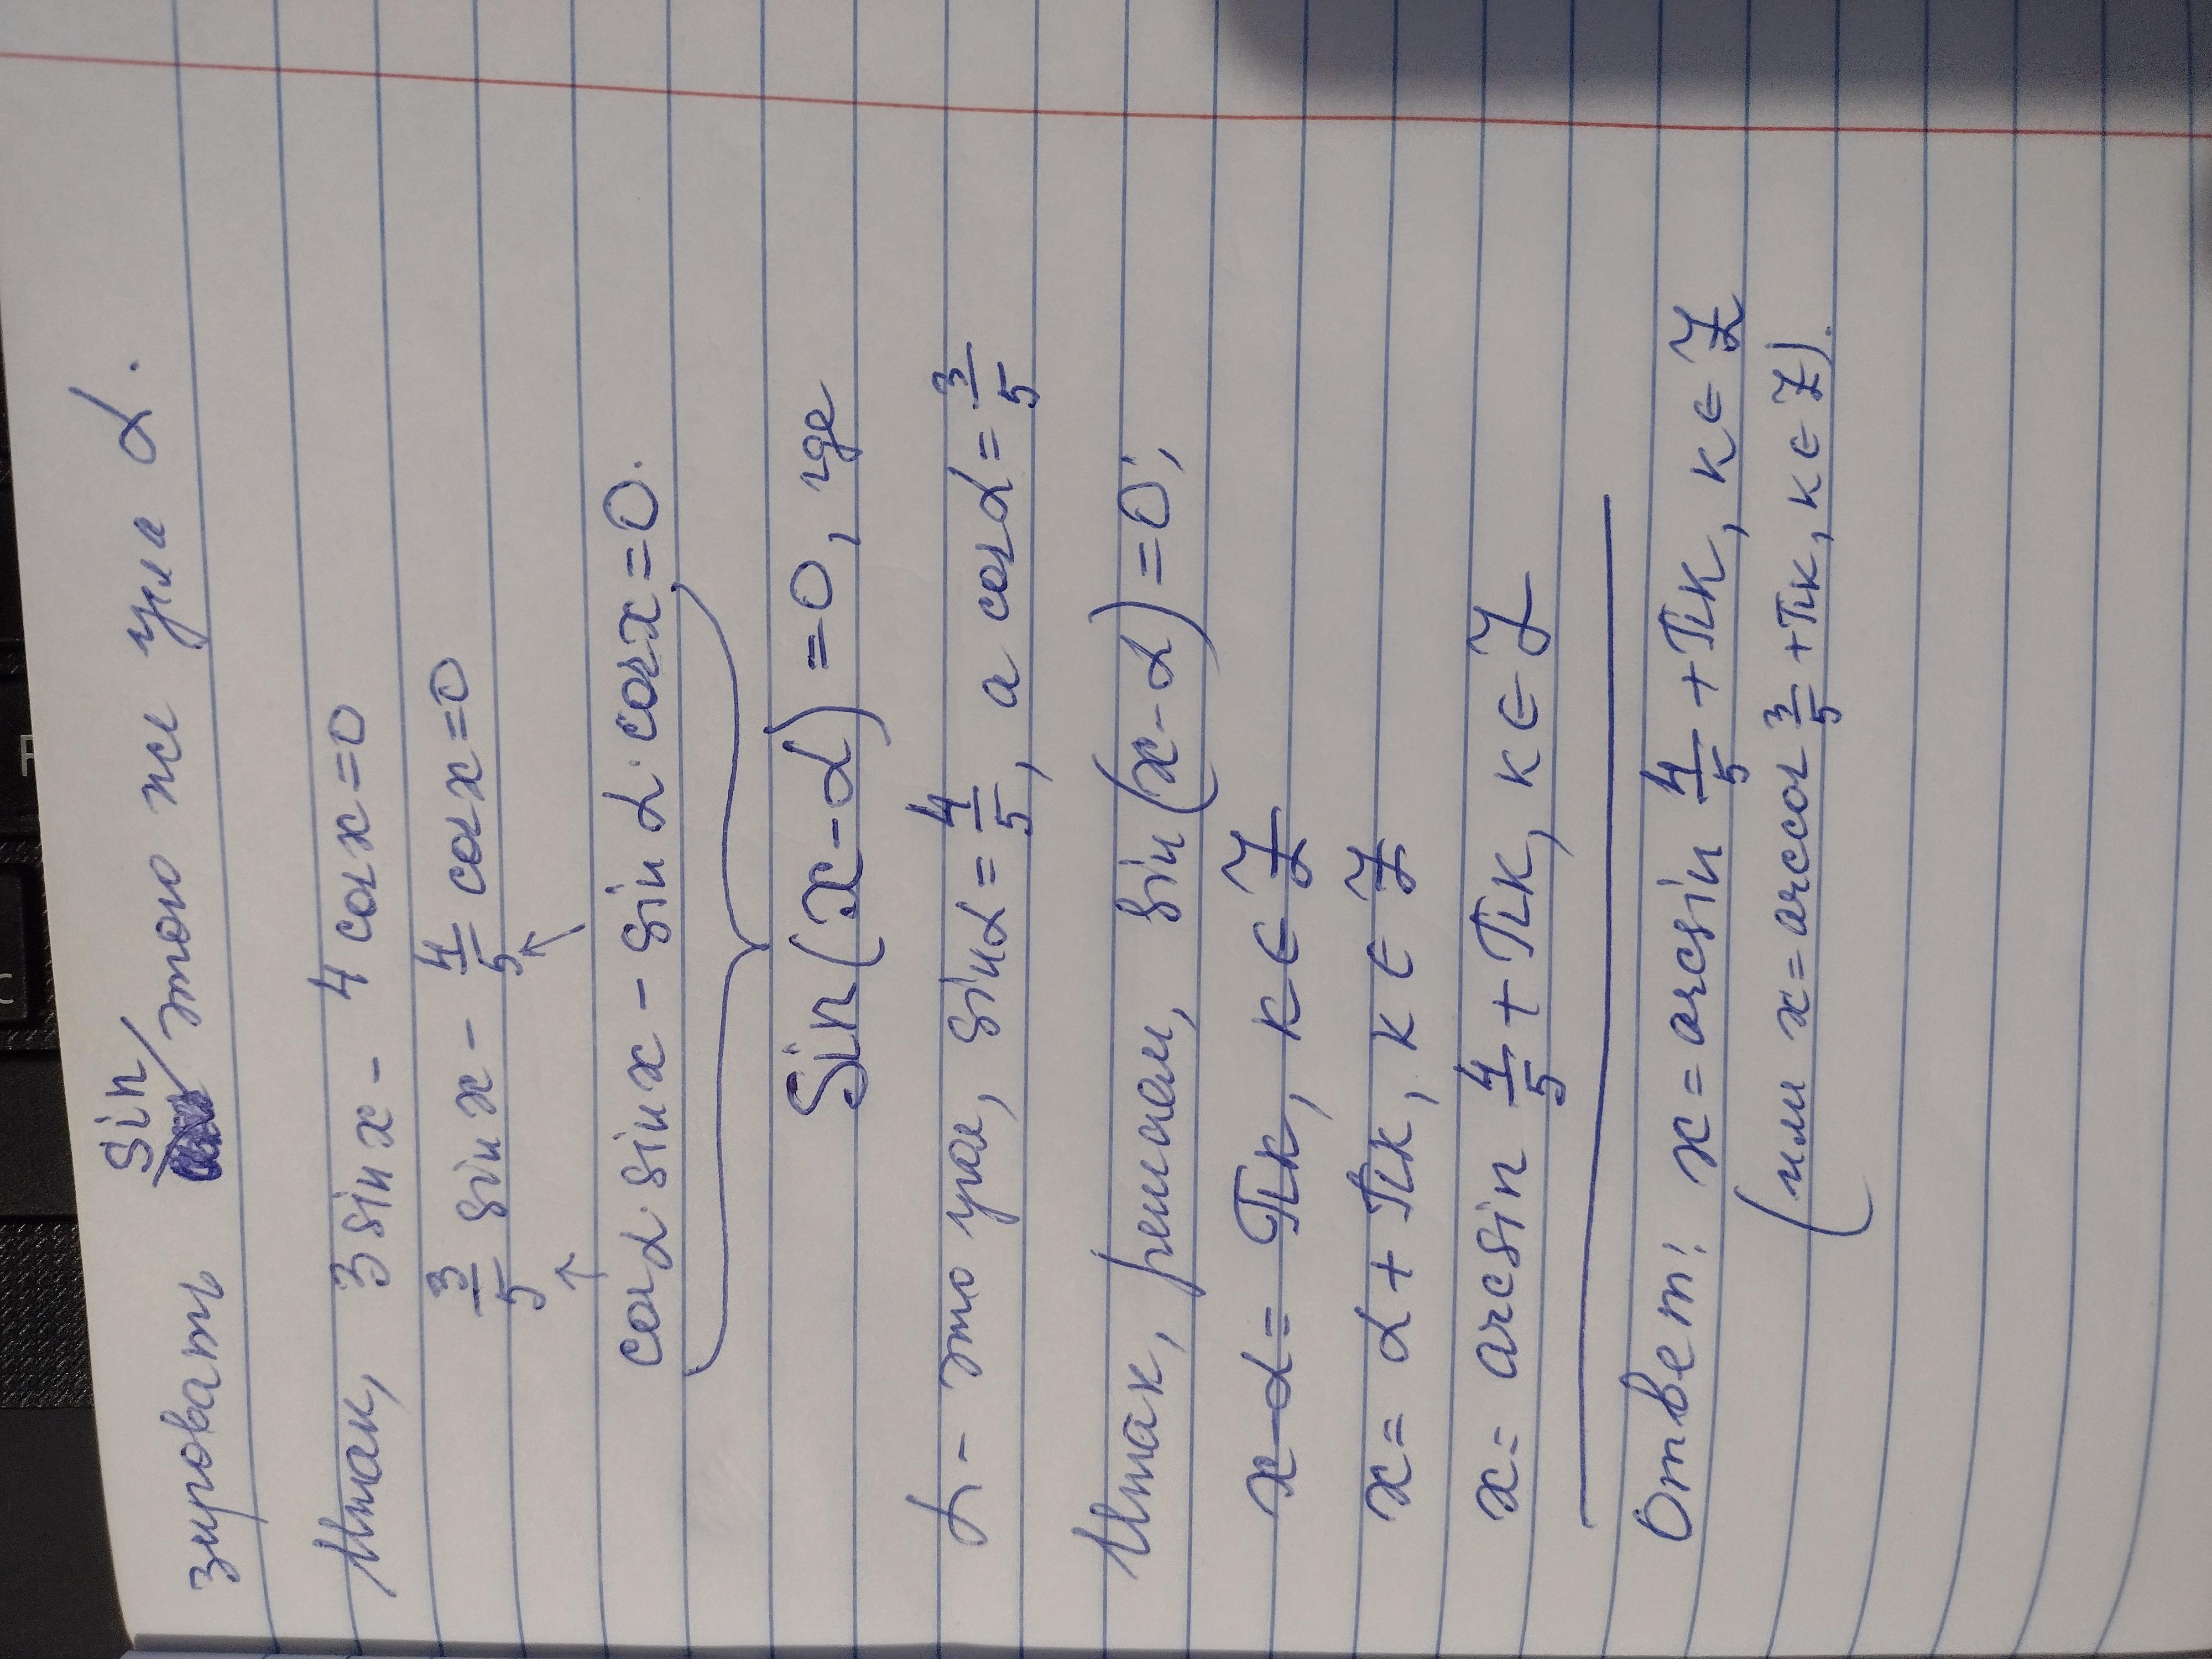 зировать sin этого же угла α.
Итак, 3 sin x - 4 cos x = 0
3/5 sin x - 4/5 cos x = 0
↑ ↑
cos α · sin x - sin α · cos x = 0.
Sin (x - α) = 0, где
α - это угол, sin α = 4/5, а cos α = 3/5
Итак, решаем, sin (x - α) = 0;
x - α = Пк, к ∈ Z
x = α + Пк, к ∈ Z
x = arcsin 4/5 + Пк, к ∈ Z
Ответ: x = arcsin 4/5 + Пк, к ∈ Z
(или x = arccos 3/5 + Пк, к ∈ Z).